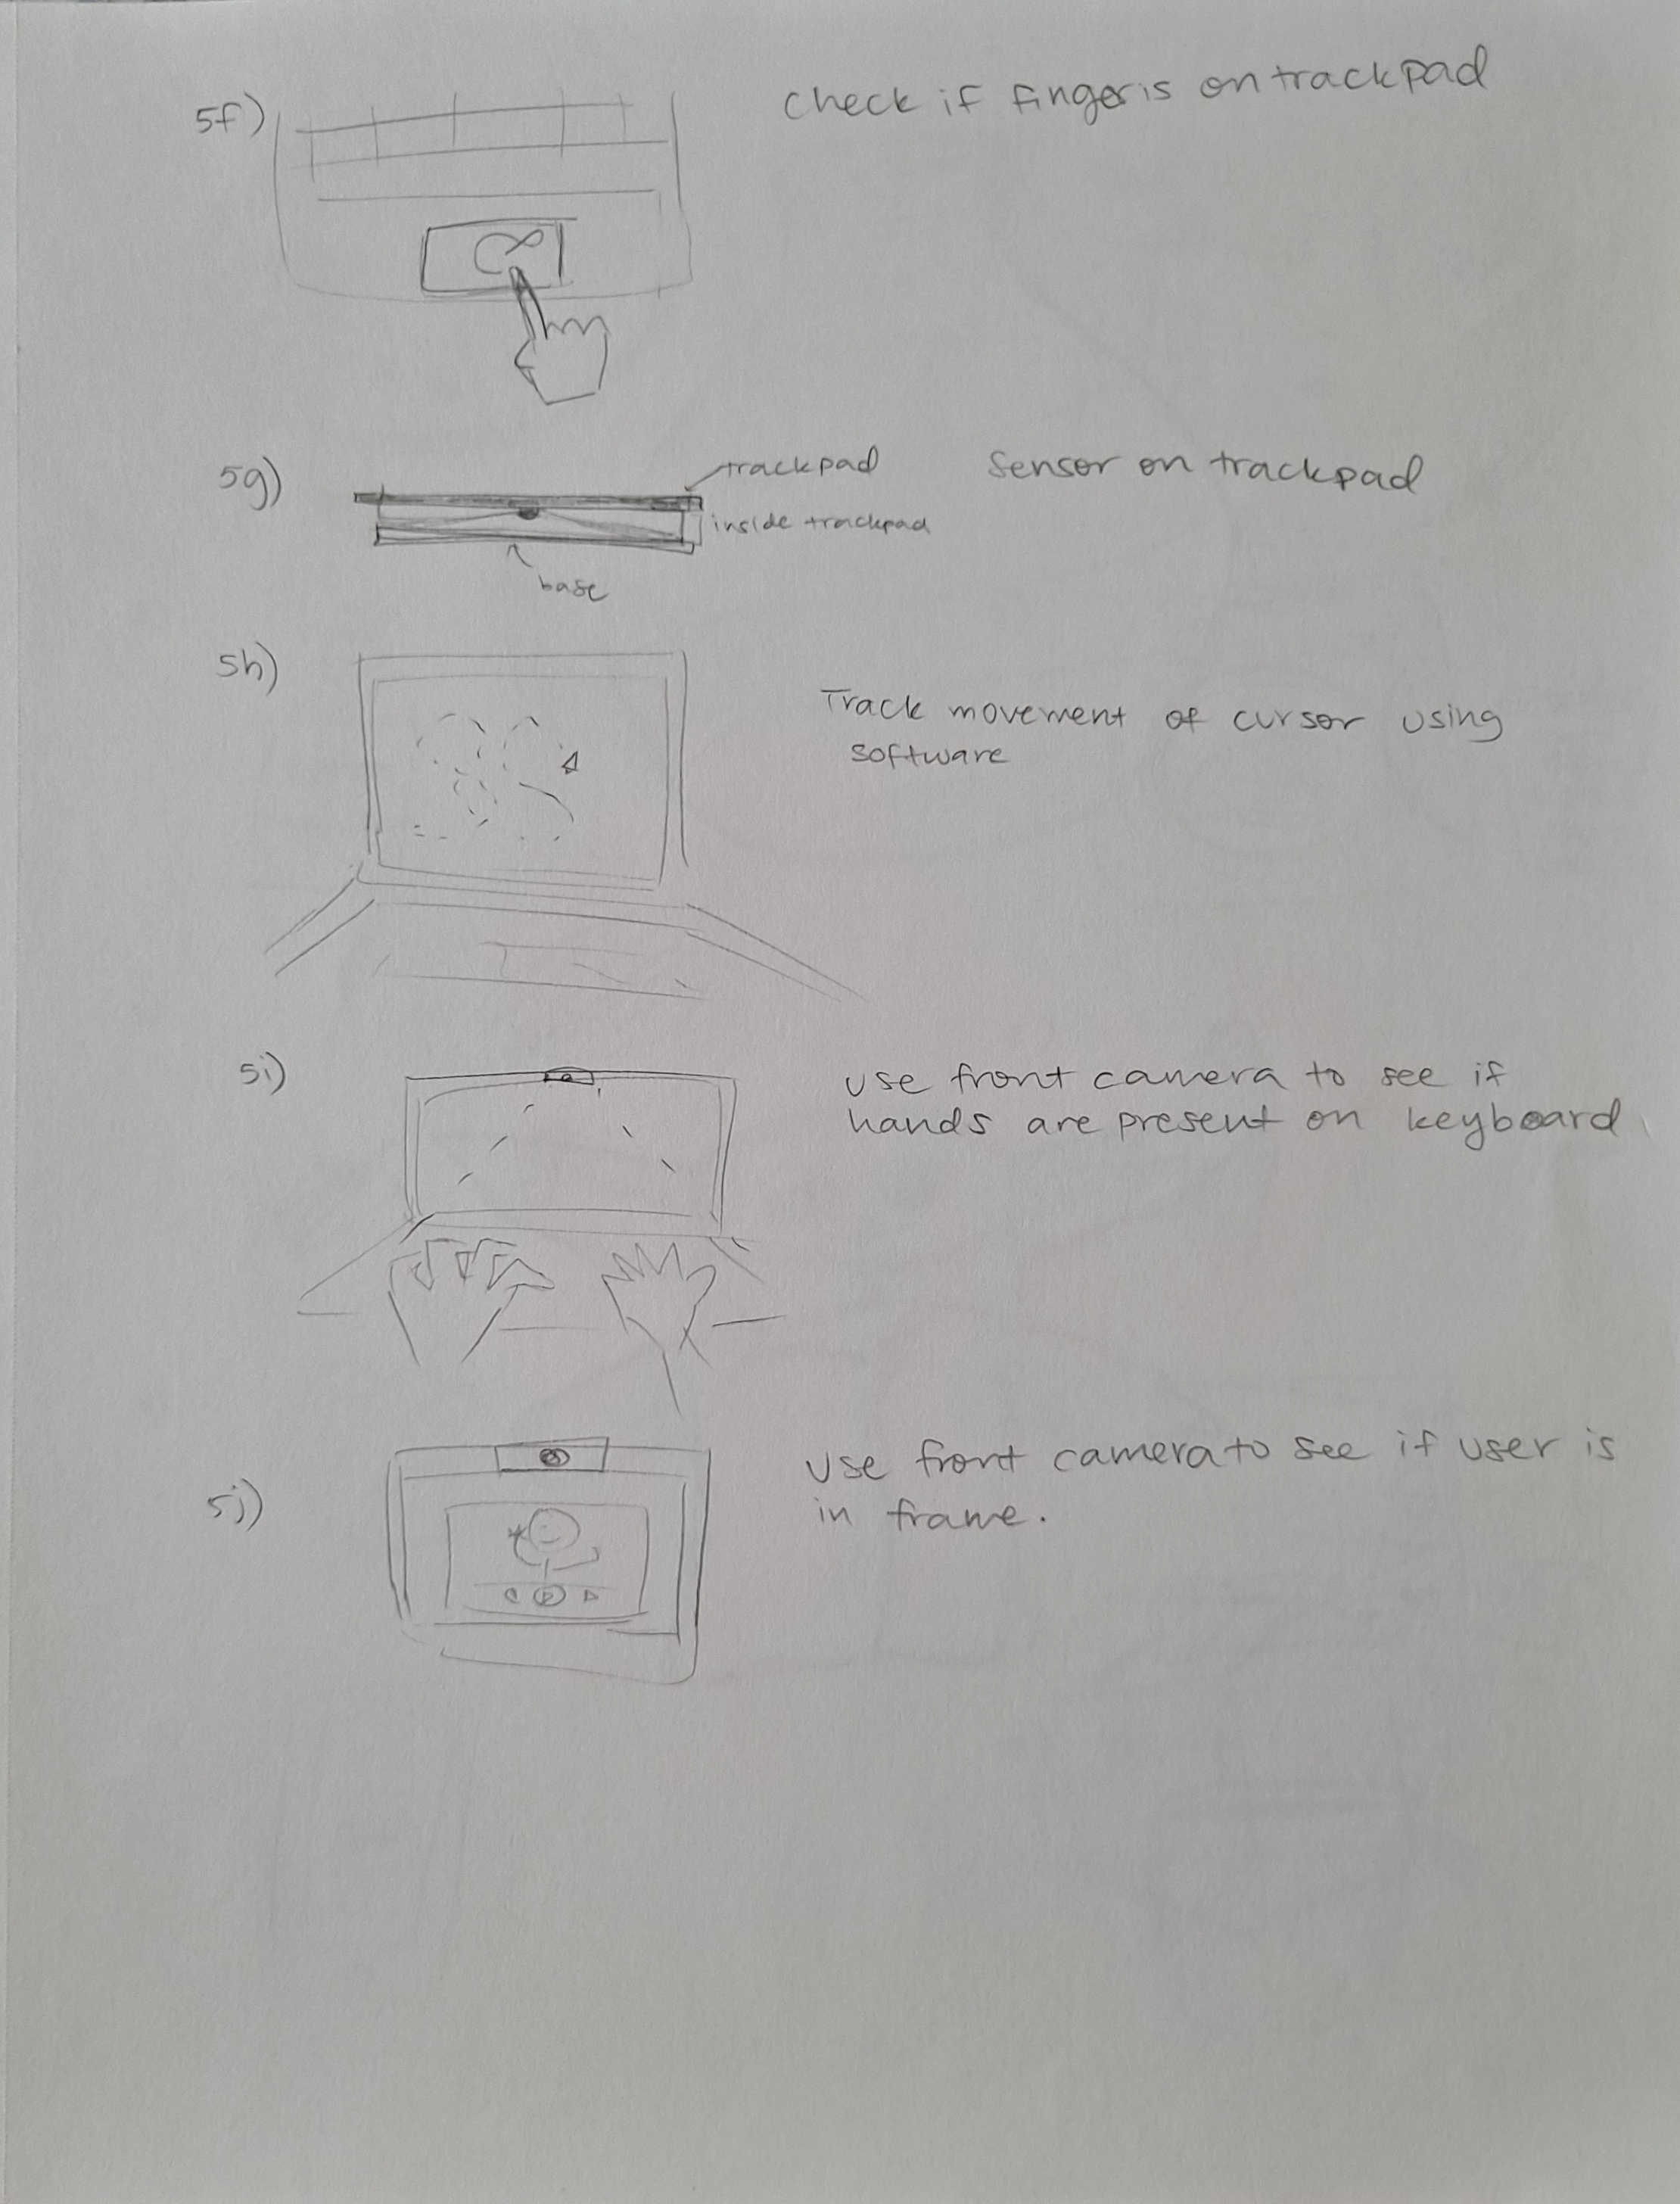 5f)
Check if finger is on trackpad
5g)
trackpad
Sensor on trackpad
inside trackpad
base
5h)
Track movement of cursor using
software
5i)
use front camera to see if
hands are present on keyboard
5j)
Use front camera to see if user is
in frame.